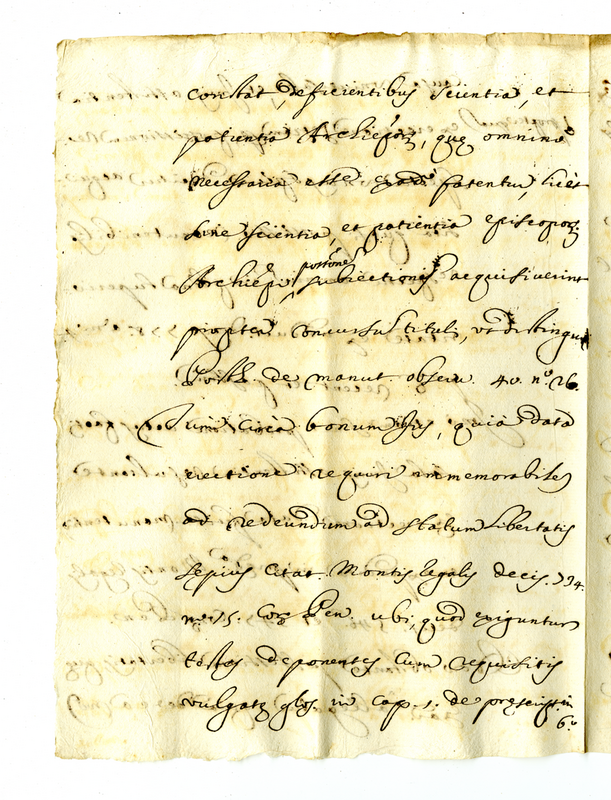 constat, deficientibus scientia, et
patientia Archiepõrz, quę omnino
necessaria esse fatentur, licèt
sine scientia, et patientia episcoporz
Archiepi possõnes subiectionis acquisiverint
propter concursũ tituli, ut distinguit
Posth. de manut. observ. 40. nº 26.
Tum circa bonum Ius, quia data
erectione requiri immemorabilem
ad redeundum ad statum libertatis
sepius citat. Montis Regalis decis. 734.
nº 15. Coz Pen. ubi, quod exiguntur
testes deponentes cum requisitis
vulgatę glos. in cap. 1. de pręscript. in
6º